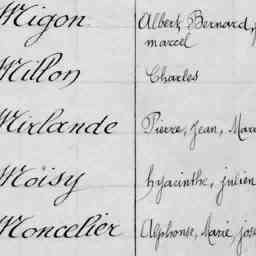 Migon Albert, Bernard,
marcel
Millon Charles
Mirlande Pierre, Jean,
Moïsy hyacinthe, julien
Moncelier Alphonse, Marie,